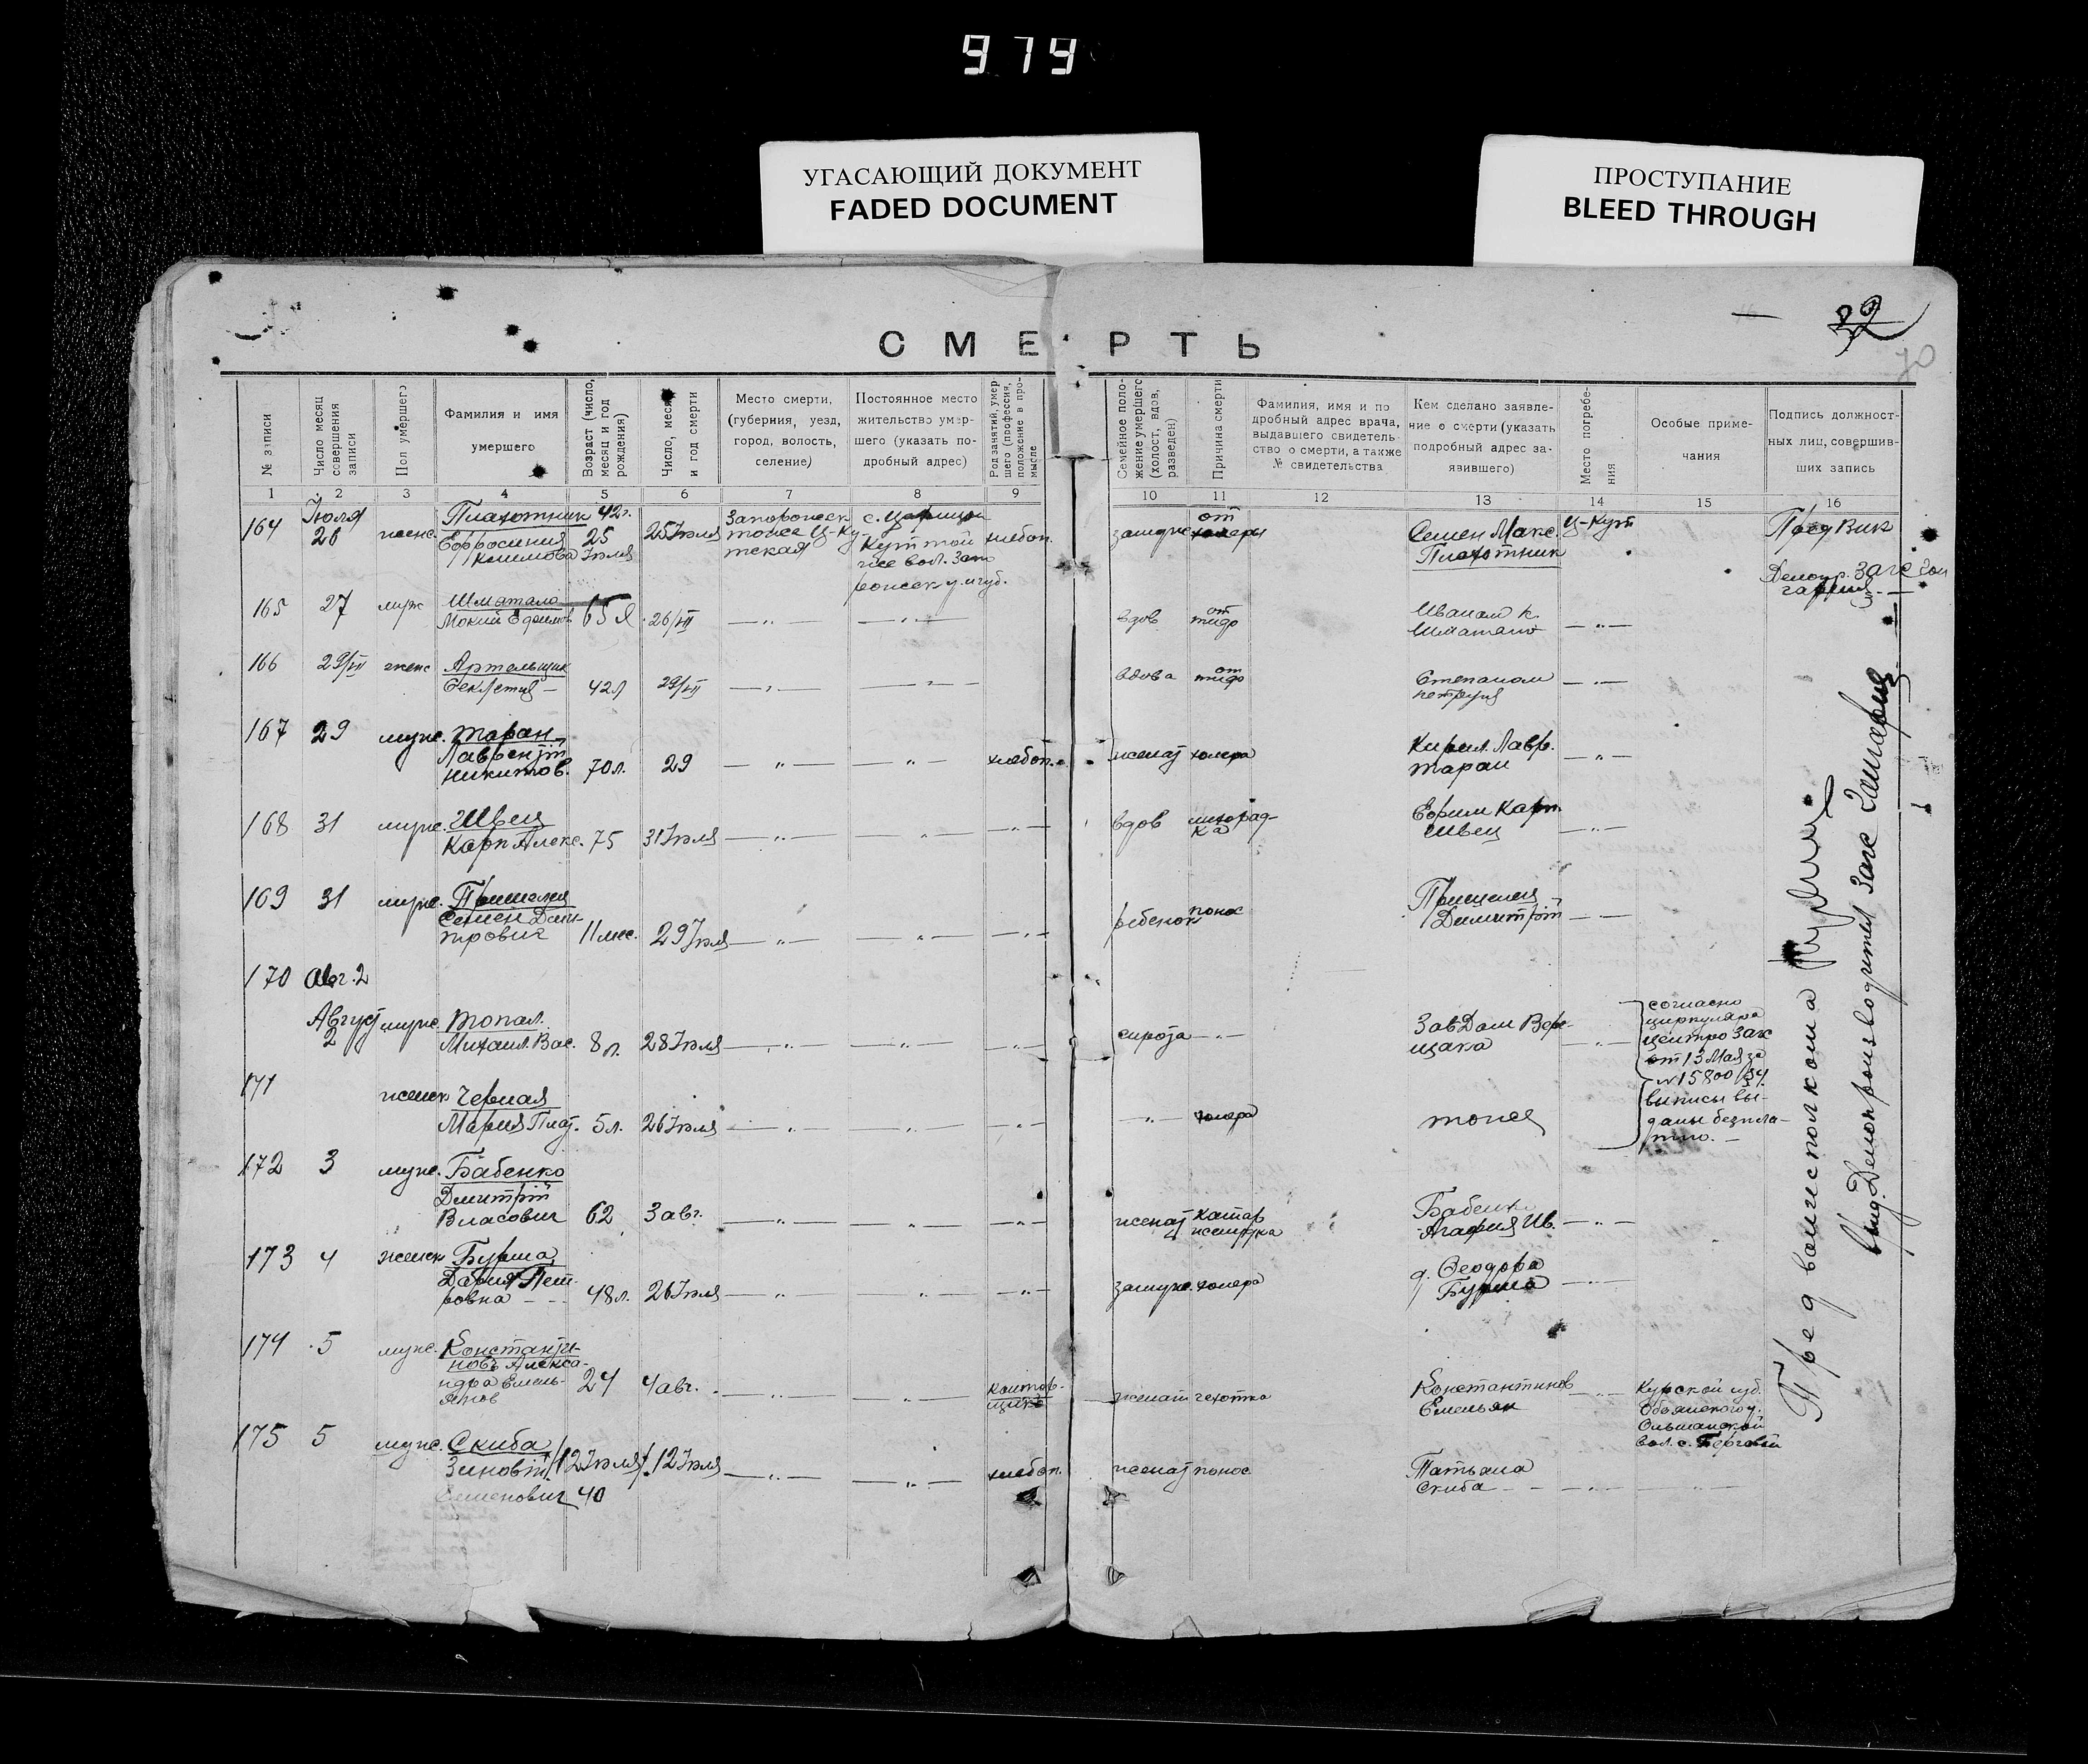 979
УГАСАЮЩИЙ ДОКУМЕНТ
FADED DOCUMENT
ПРОСТУПАНИЕ
BLEED THROUGH
70
СМЕРТЬ
№ записи
Число месяц
совершения
записи
Пол умершего
Фамилия и имя
умершего
Возраст (число,
месяц и год
рождения)
Число, месяц
и год смерти
Место смерти,
(губерния, уезд,
город, волость,
селение)
Постоянное место
жительство умер-
шего (указать по-
дробный адрес)
Род занятий, умер-
шего (профессия,
положение в про-
мысле
Семейное поло-
жение умершего
(холост, вдов,
разведен)
Причина смерти
Фамилия, имя и по
дробный адрес врача,
выдавшего свидетель-
ство о смерти, а также
№ свидетельства
Кем сделано заявле-
ние о смерти (указать
подробный адрес за-
явившего)
Место погребе-
ния
Особые приме-
чания
Подпись должност-
ных лиц, совершив-
ших запись
1 2 3 4 5 6 7 8 9 10 11 12 13 14 15 16
164 Июля 26 женс. Плахотник Ефросиния 42 г. 25 Июля 25 Июля
хлебоп. замуже от холеры Семен Макс. Плахотник Ц-Кут Пред Вик
165 27 муж Шматало Мокий Ефимов 65 л 26/VII —„— —„— вдов от тифо Иваном К. Шматало —„—
166 29/VII женс Артельщик 42 л 29/VII —„— —„— вдова от тифо Степаном —„—
167 29 муже. Таран Лаврентий Никитов. 70 л. 29 —„— —„— хлебоп. женат холера Кирил. Лавр. Таран —„—
168 31 муже. Швец Карп Алекс. 75 31 Июля —„— „ —„— вдов лихорад-
ка Ефим Карп. Швец —„—
169 31 муже. Семен Дми-
трович 11 мес. 29 Июля —„— —„— —„— ребенок понос Дмитрий —„—
170 Авг. 2
Август 2 муже. Топал Михаил Вас. 8 л. 28 Июля —„— —„— —„— сирота —„— Зав Дом Вере-
щака —„—
согласно
циркуляра
центро Загс
от 13 Мая за
№ 15800/34
выписы вы-
даны безпла-
тно. —
171 женск Черная Мария Плат. 5 л. 26 Июля —„— —„— —„— —„— холера тоже
172 3 муже. Бабенко Дмитрий Власович 62 3 авг. —„— —„— —„— женат катар желудка Бабенко Агафия Ив. —„—
173 4 женск Бурма Дария Пет-
ровна 48 л. 26 Июля —„— —„— —„— замуже. холера Феодора Бурма —„—
174 5 муже. Константи-
новъ Алекса-
ндра Емель-
янов 24 4 авг. —„— —„— контор-
щик женат чехотка Константинов Емельян —„— Курской губ.
Обоянского у.
Ольшанской
вол. с.
175 5 муже. Скиба Зиновий Семенович 12 Июля 40 12 Июля —„— —„— хлебоп. женат понос Татьяна Скиба —„— —„—
Пред волисполкома
Делопроизводител Загс